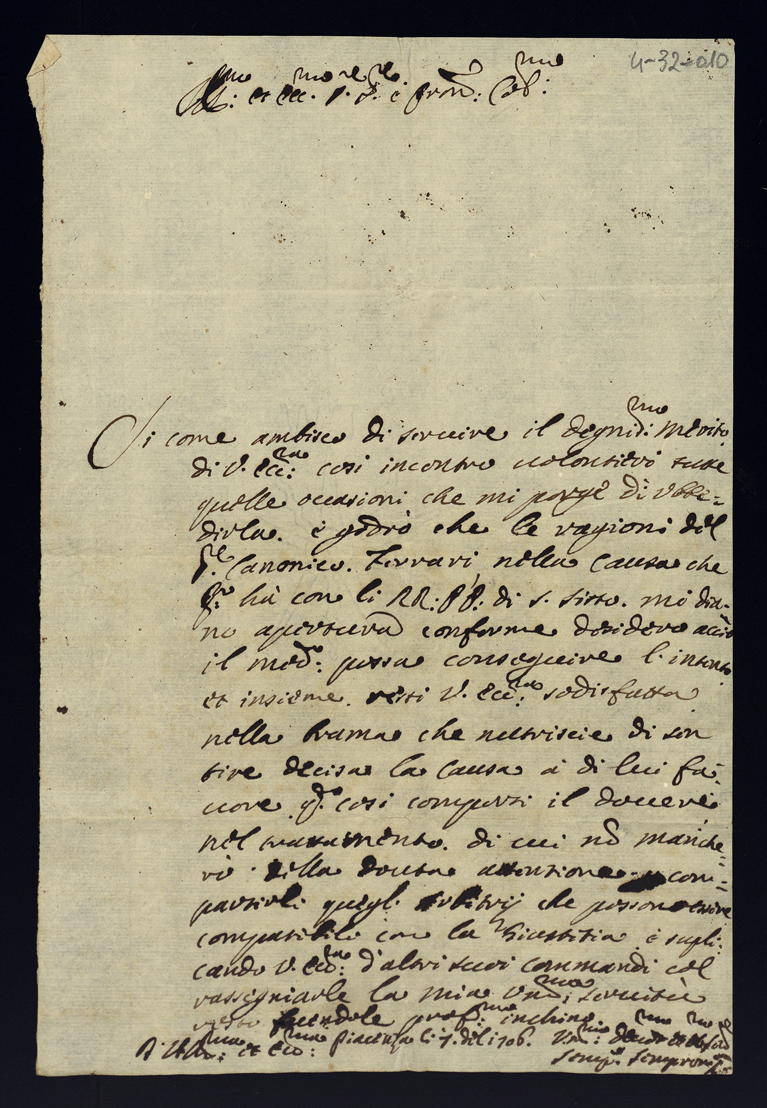 4-32-010
Ill:mo et Ecc:mo S.re P.re e Pron: Col:mo
Si come ambisco di servire il degnis:mo merito
di V. Ecc:za cosi incontro volontieri tutte
quelle occasioni che mi porge di Obbe=
dirla. e godrò che le ragioni del
S.re Canonico Ferrari nella Causa che
hà con li RR: PP: di S. Sisto. mi dia-
no apertura conforme desidero acciò
il med:o possa conseguire l'intento
et insieme resti V. Ecc:za sodisfatta
nella brama che nutriscie di sen
tire decisa la Causa à di lui fa-
uore q.do cosi comporti il douere
nel trattamento. di cui nõ manche-
rò della douuta attentione com=
partirli quegl' arbitrij che possono essere
compatibili con la Giustitia e supli-
cando V. Ecc:za d'altri suoi commandi col
rassegniarle la mia um:ma seruitù
resto facendole prof:mo inchino.
D. V. Ill:ma et Ecc:ma Piacenza li 7. del 1706.